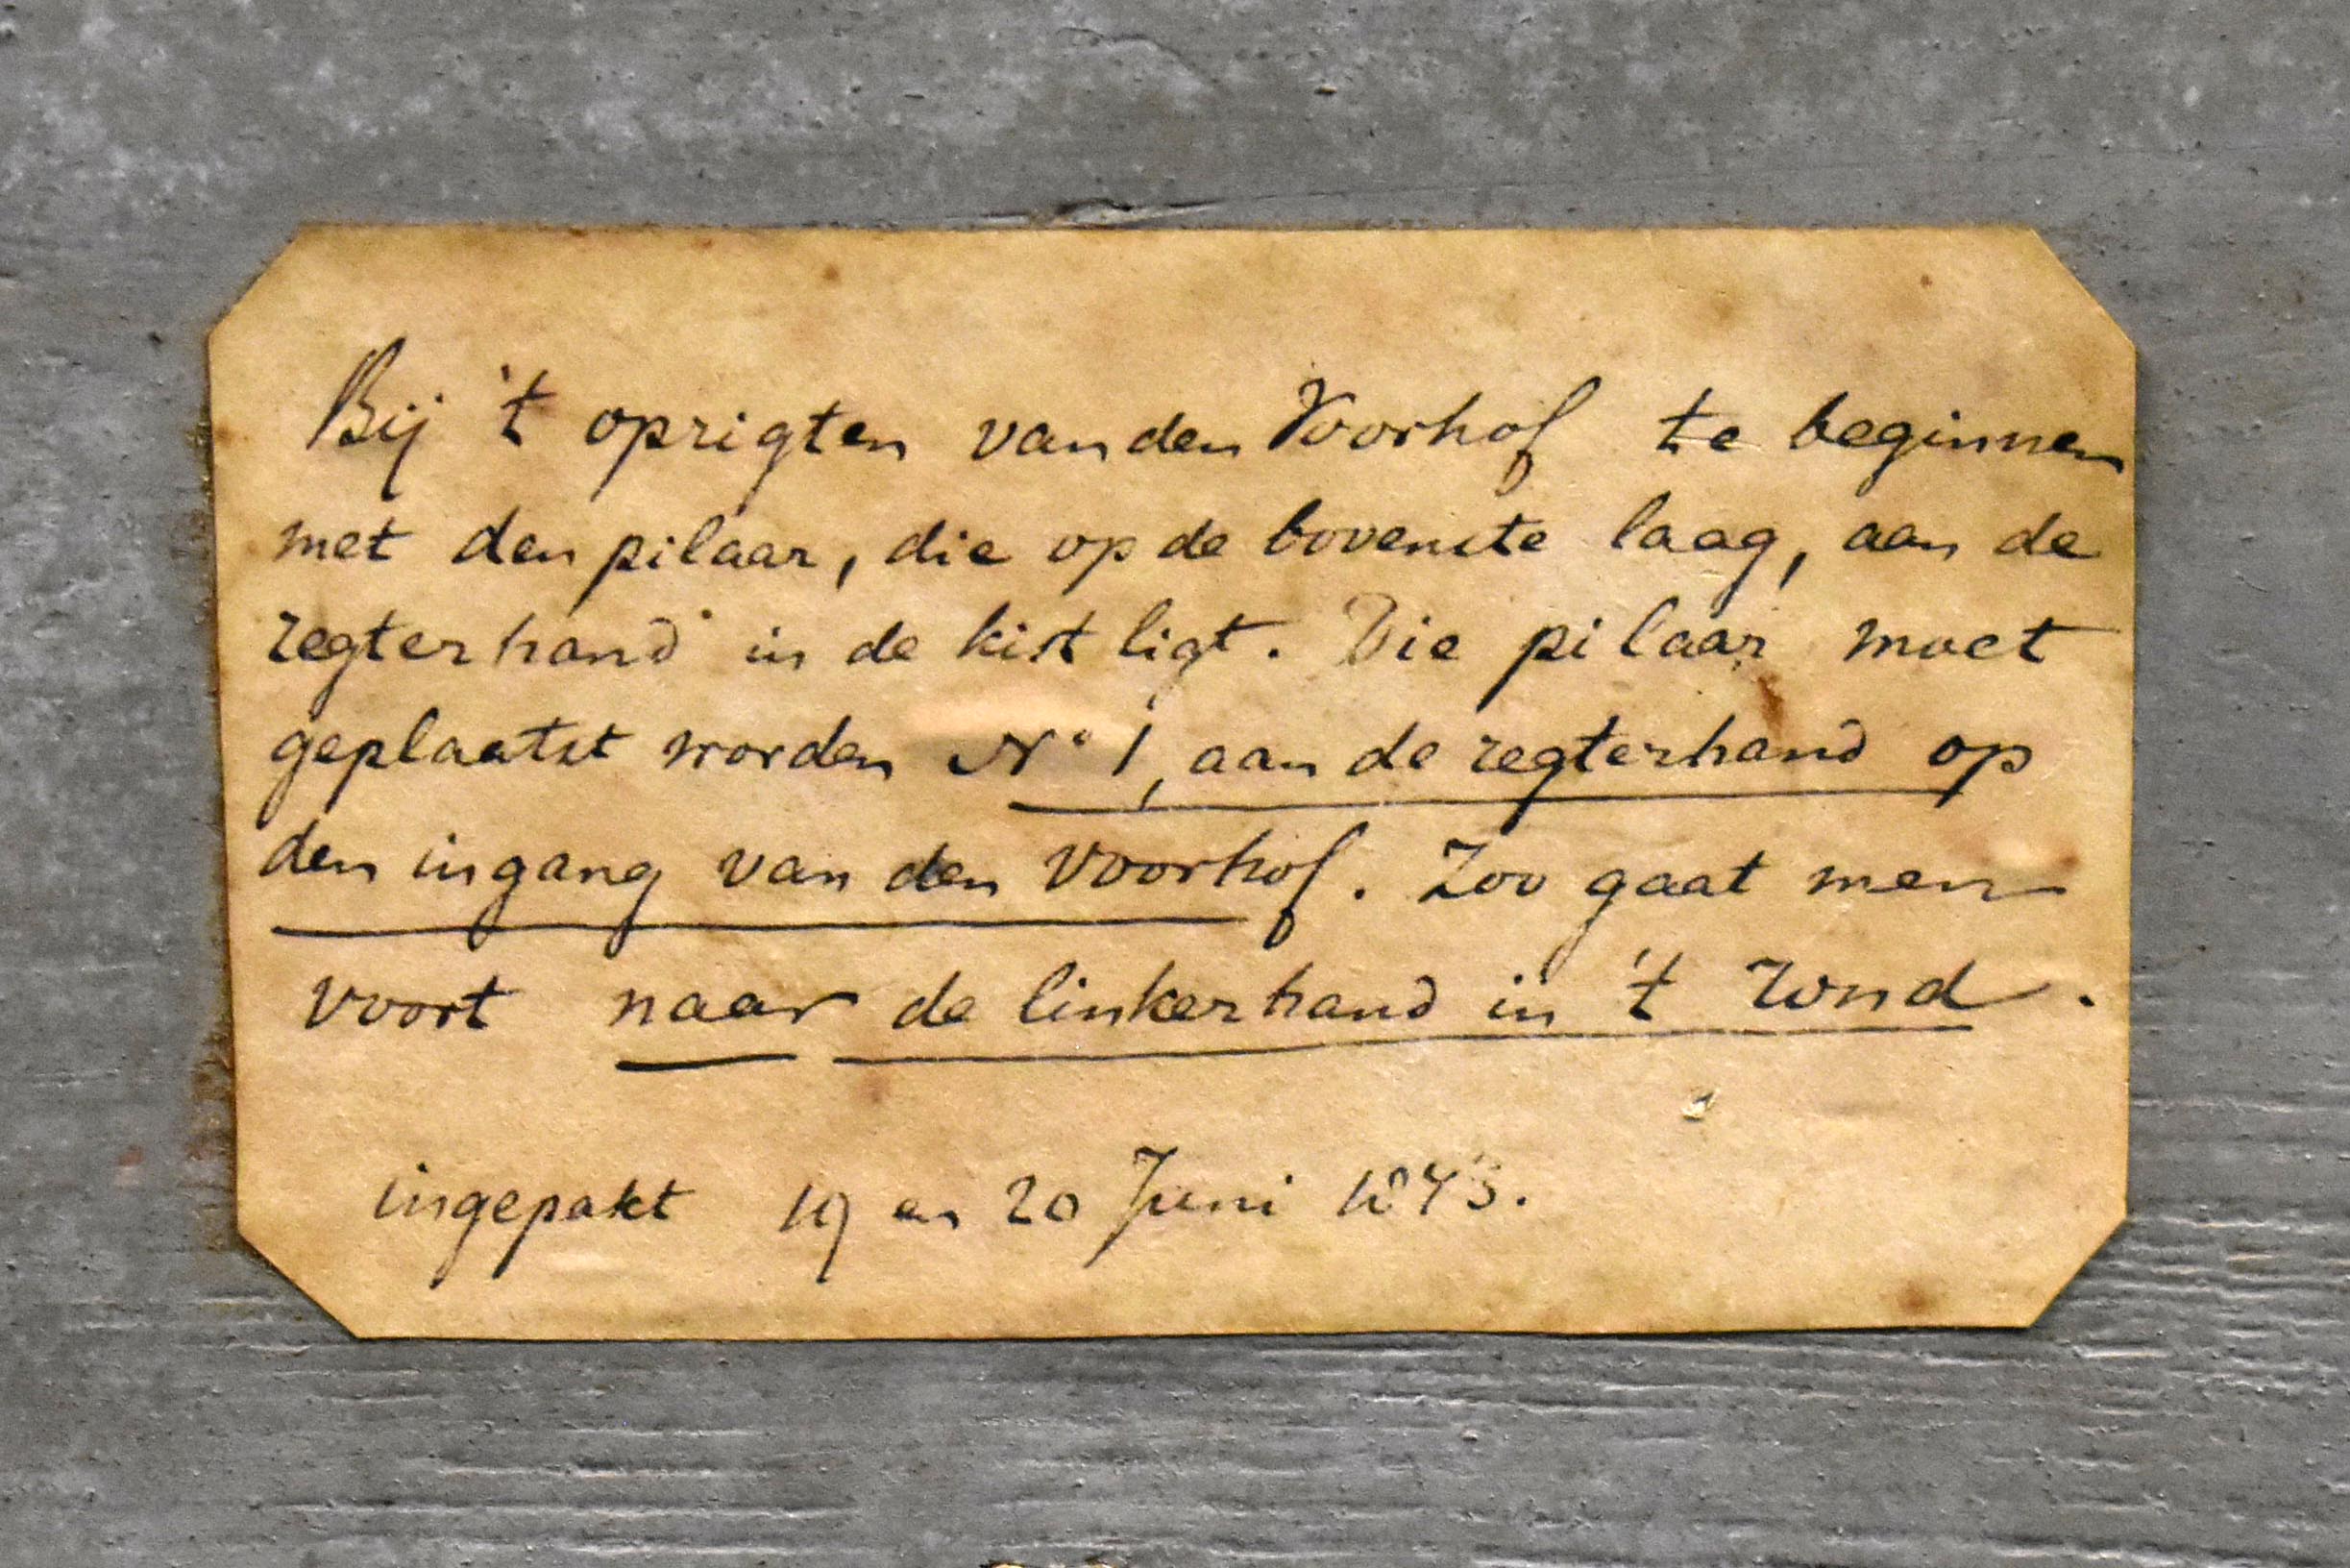 Bij 't oprigten van den Voorhof te beginnen
met den pilaar, die op de bovenste laag, aan de
regterhand in de kist ligt. Die pilaar moet
geplaatst worden N° 1, aan de regterhand op
den ingang van den voorhof. Zoo gaat men
voort naar de linkerhand in 't rond.
ingepakt 19 en 20 Juni 1873.